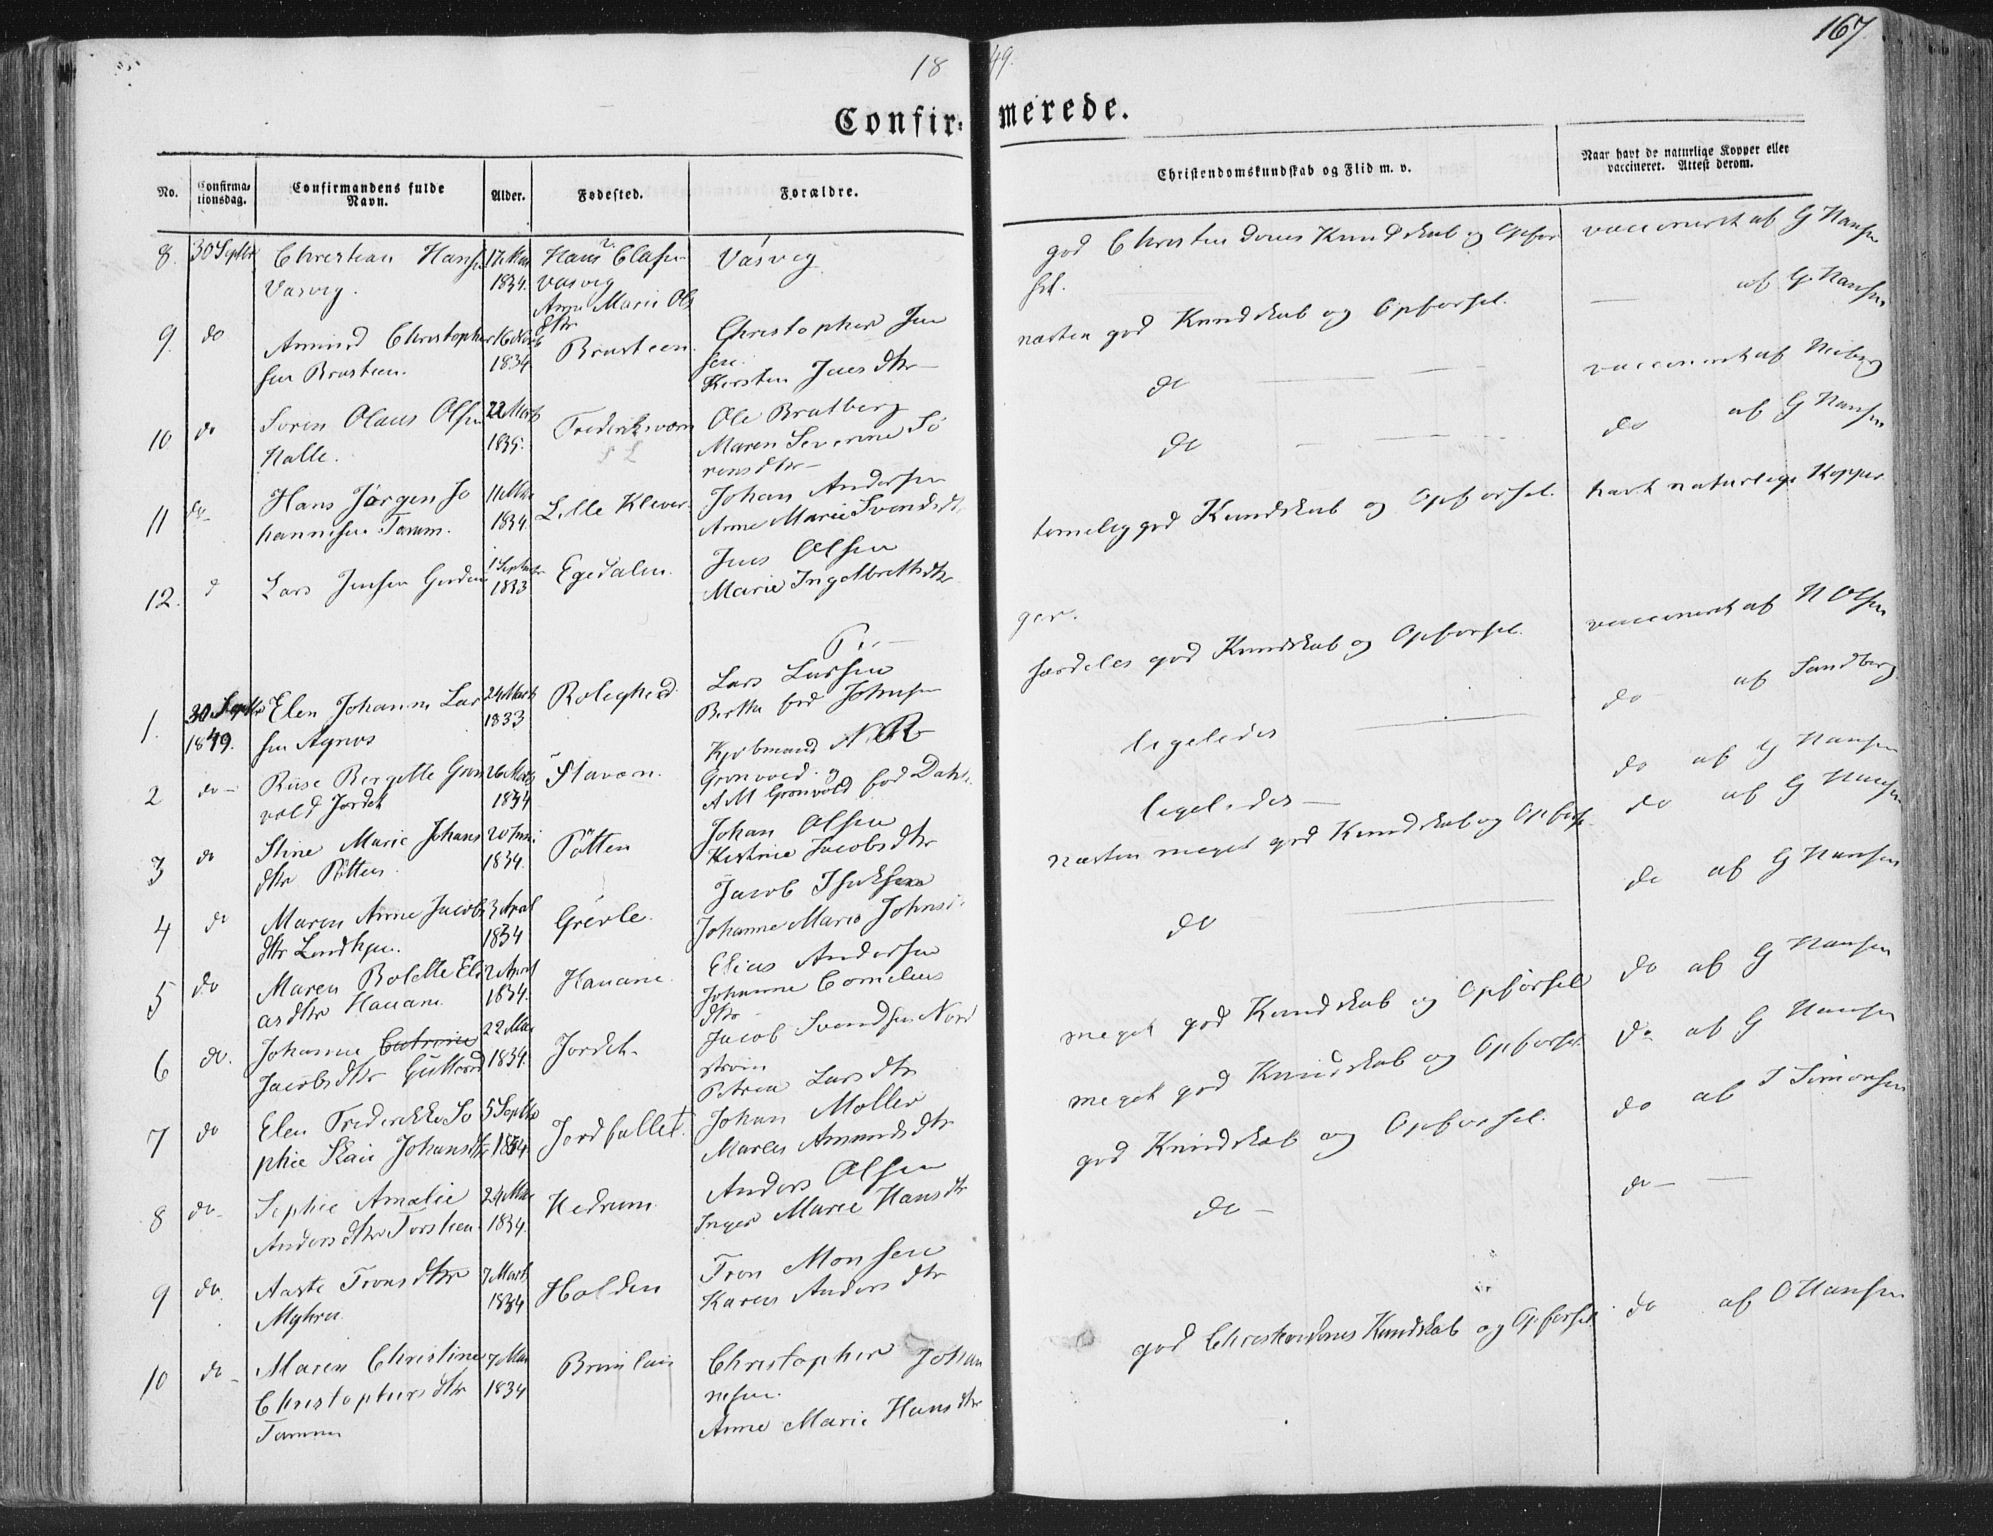 1849.
167.
Confirmerede.
No.
Confirmationsdag.
Confirmandens fulde Navn.
Alder.
Fødested.
Forældre.
Christendomskundskab og Flid m. v.
Naar havt de naturlige Kopper eller vaccineret. Attest derom.
8. 30 Septbr Christian Hansen 17 Mai Hans Olafsen Vasvig god Christendoms Kundskab og Opfør vaccineret af G Hansen
Vasvig. 1834. Vasvig sel.
Anne Marie Ols
dtr
9. do Amund Christopher 16 Novb Brusteen. Christopher Jen næsten god Kundskab og Opførsel. — af G. Hansen
sen Brusteen. 1834 sen.
Kersten Jensdtr do — vaccineret af Neiberg
10 do Søren Olaus Olsen 22 Marts Frederiksværn Ole Bratberg
Halle. 1835. Maren Severine Sø do — do af G Hansen
rensdtr
11 do Hans Jørgen Jo 11 Mai Lille Klever. Johan Andersen temelig god Kundskab og Opførsel. havt naturlige Kopper
hannesen Tamm. 1834 Anne Marie Svendsdt
12. d Lars Jensen 1 Septbr Egedalen. Jens Olsen
1833 Marie Ingelbretsdtr
ger.
1. 30 Septbr Elen Johanne Lar 24 Marts Roleghed Lars Larsen særdeles god Kundskab og Opførsel. vaccineret af N Olsen
1849. sen Agnes 1833 Berthe fød Johnsen
2 do Gron 26 Marts Staværn. Kjøbmand ligeledes — do af Sandberg
vold Jordet 1834 Grønvold og
A M Grønvold fød Dahl
3 do Stine Marie Johans 20 Juni Pøtten Johan Olsen ligeledes — do af G Hansen
dtr Pøtten. 1834. Kirstine Jacobsdtr
4 do Maren Anne Jacobs 3 April Grevle. Jacob Isaksen næsten meget god Kundskab og Opførs. do af G Hansen
dtr 1834 Johanne Marie Johnsd.
5 do Maren Bolette Eli 2 April Havane. Elias Andersen do — do af G Hansen
asdtr Havane 1834. Johanne Cornelius
dtr
6 do. Johanne Catrine 22 Mai Jordet. Jacob Svendsen Nord meget god Kundskab og Opførsel do af G Hansen
Jacobsdtr 1834. strøm
Petrea Larsdtr
7 do Elen Frederikke So 5 Septbr Jordfallet. Johan Møller meget god Kundskab og Opførsel. do af G Hansen
phie Johansdtr 1834. Maren Amundsdtr
8 do Sophie Amalie 24 Mai Hedrum Anders Olsen god Kundskab og Opførsel. do af J Simonsen
Andersdtr Torsteen 1834. Inger Marie Hansdtr
9 do Aaste Tronsdtr 7 Marts Holden Tron Monsen do — do —
Myhra 1834 Karen Andersdtr
10 do Maren Christine 7 Mai Christopher Johan god Christendoms Kundskab og Opførsel do af O Hansen
Christophersdtr 1834 nesen.
Tamm Anne Marie Hansdtr